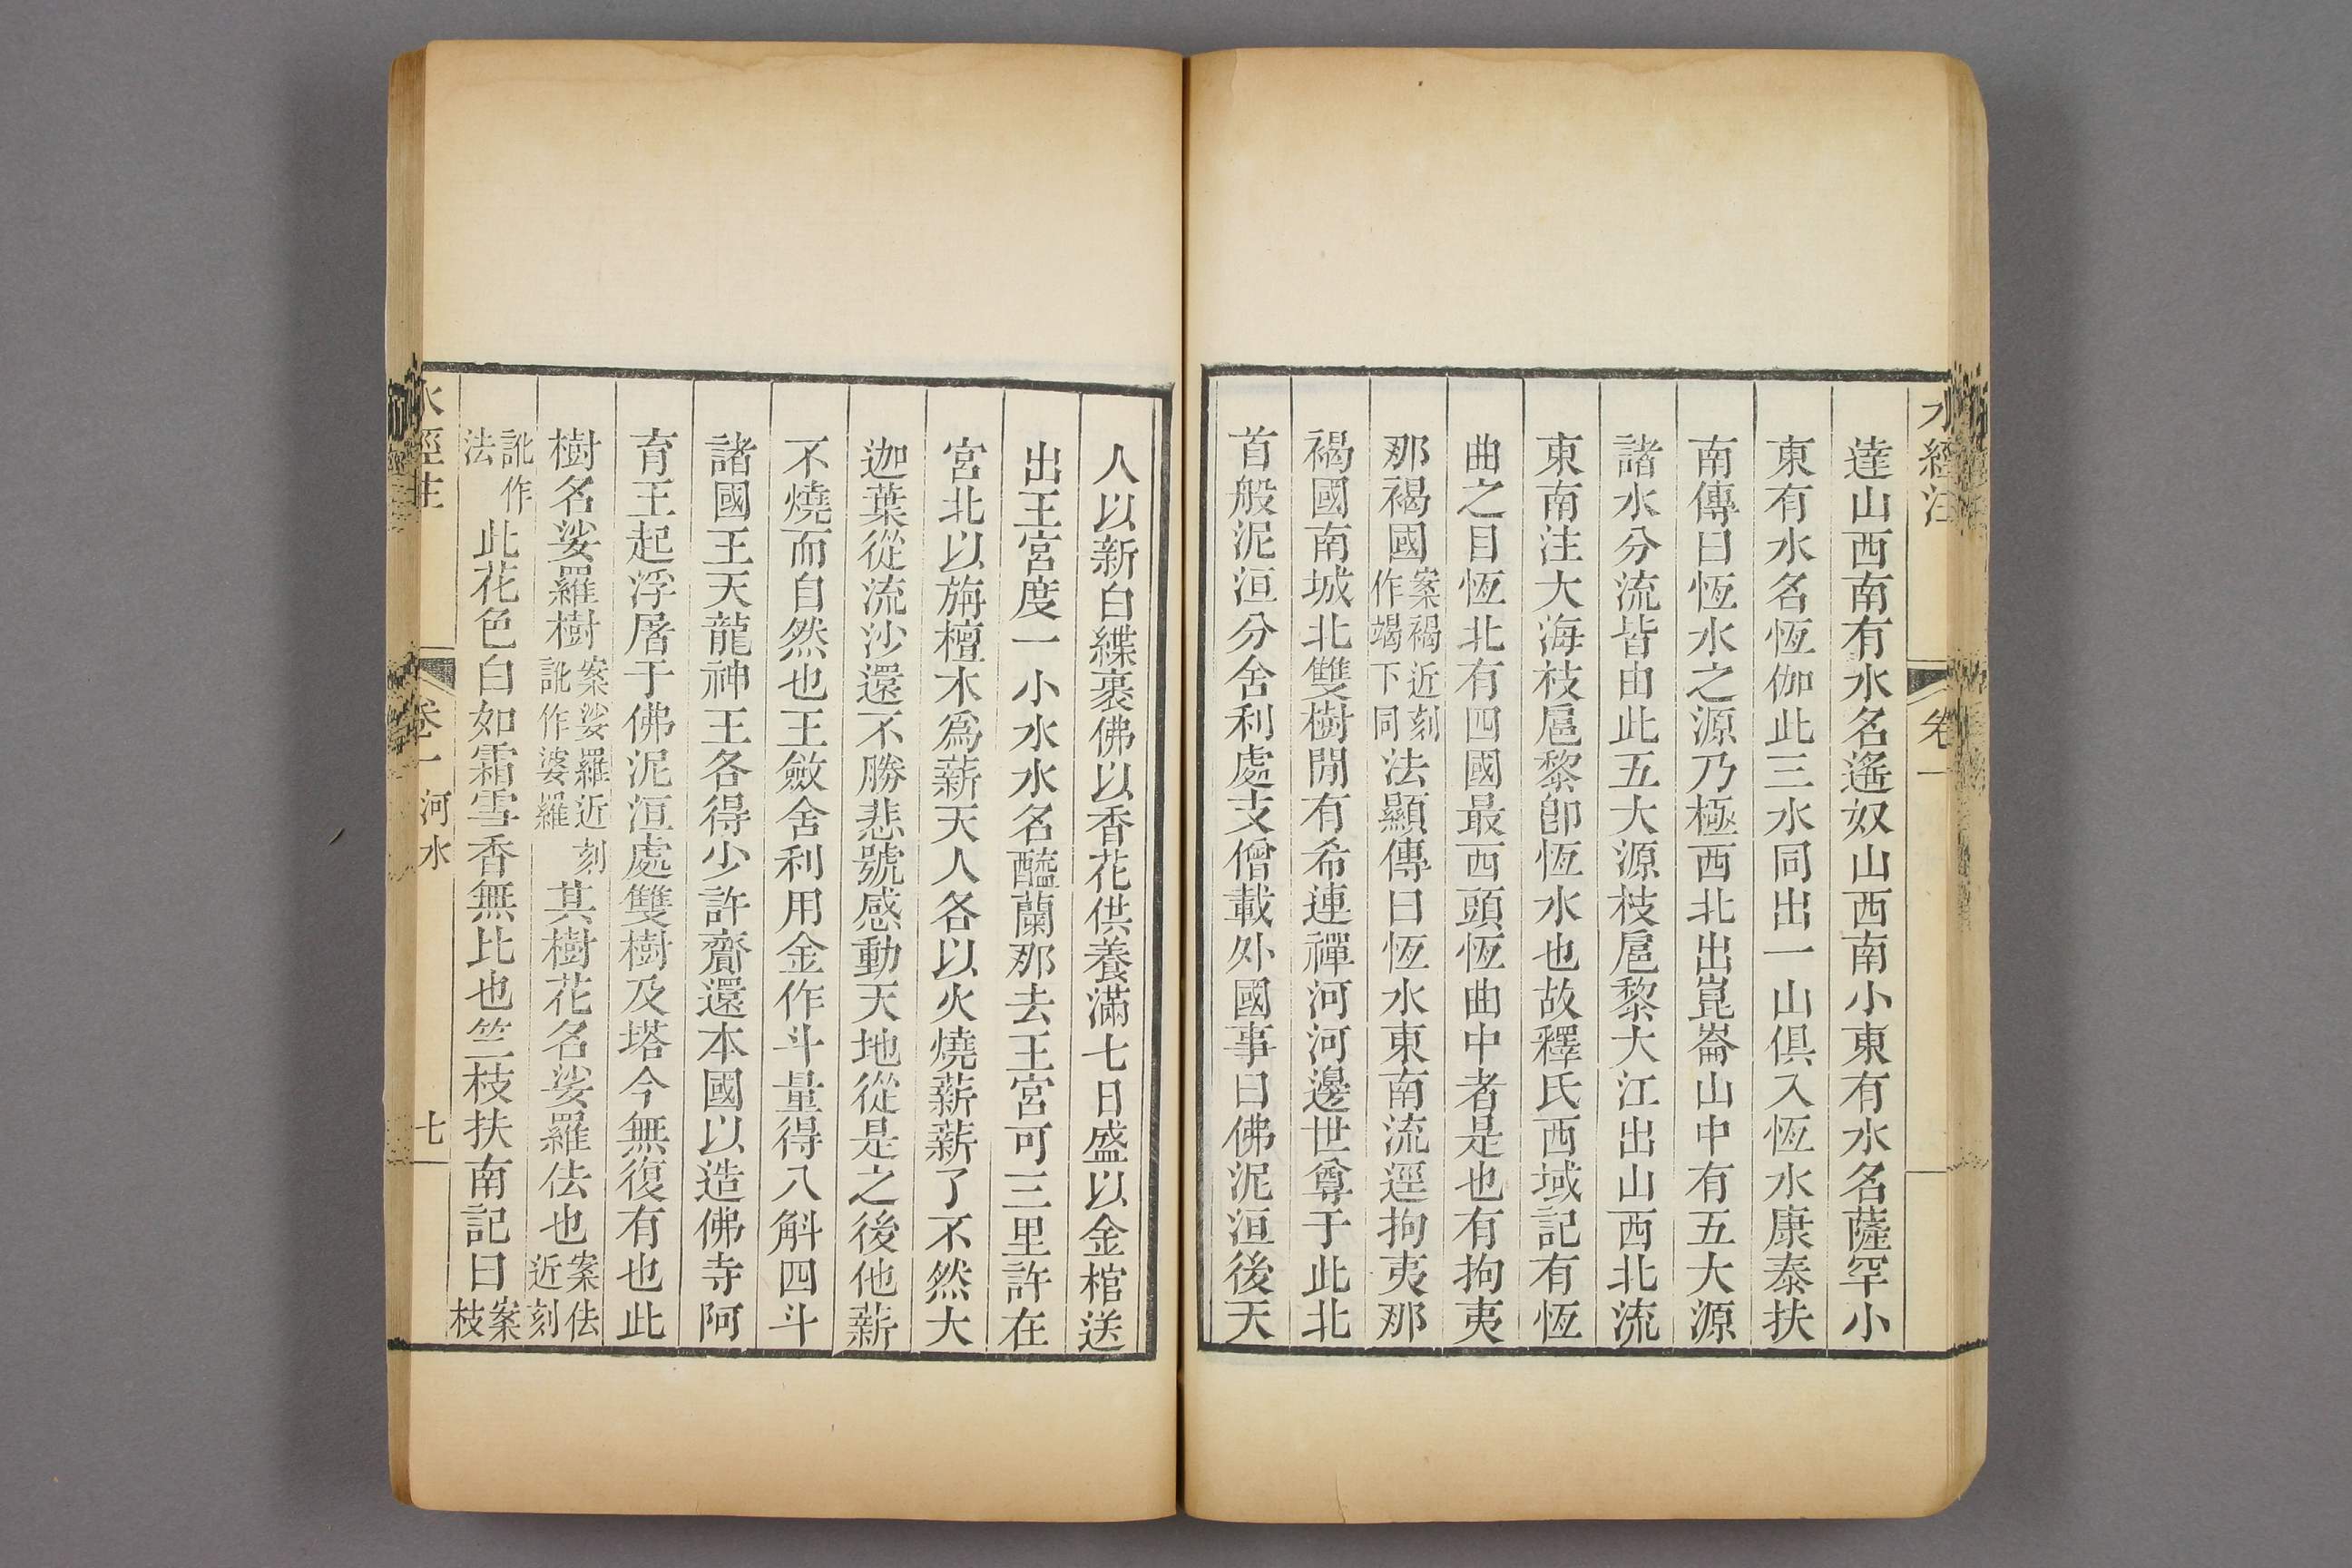 水經注 卷一
達山西南有水名遙奴山西南小東有水名薩罕小
東有水名恆伽此三水同出一山俱入恆水康泰扶
南傳曰恆水之源乃極西北出崑崙山中有五大源
諸水分流皆由此五大源枝扈黎大江出山西北流
東南注大海枝扈黎卽恆水也故釋氏西域記有恆
曲之目恆北有四國最西頭恆曲中者是也有拘夷
那褐國案褐近刻作竭下同法顯傳曰恆水東南流逕拘夷那
褐國南城北雙樹閒有希連禪河河邊世尊于此北
首般泥洹分舍利處支僧載外國事曰佛泥洹後天
人以新白緤裹佛以香花供養滿七日盛以金棺送
出王宮度一小水水名醯蘭那去王宮可三里許在
宮北以旃檀木爲薪天人各以火燒薪薪了不然大
迦葉從流沙還不勝悲號感動天地從是之後他薪
不燒而自然也王斂舍利用金作斗量得八斛四斗
諸國王天龍神王各得少許齎還本國以造佛寺阿
育王起浮屠于佛泥洹處雙樹及塔今無復有也此
樹名娑羅樹案娑羅近刻訛作婆羅其樹花名娑羅佉也案佉近刻
訛作法此花色白如霜雪香無比也竺枝扶南記曰案枝
水經注 卷一 河水 七